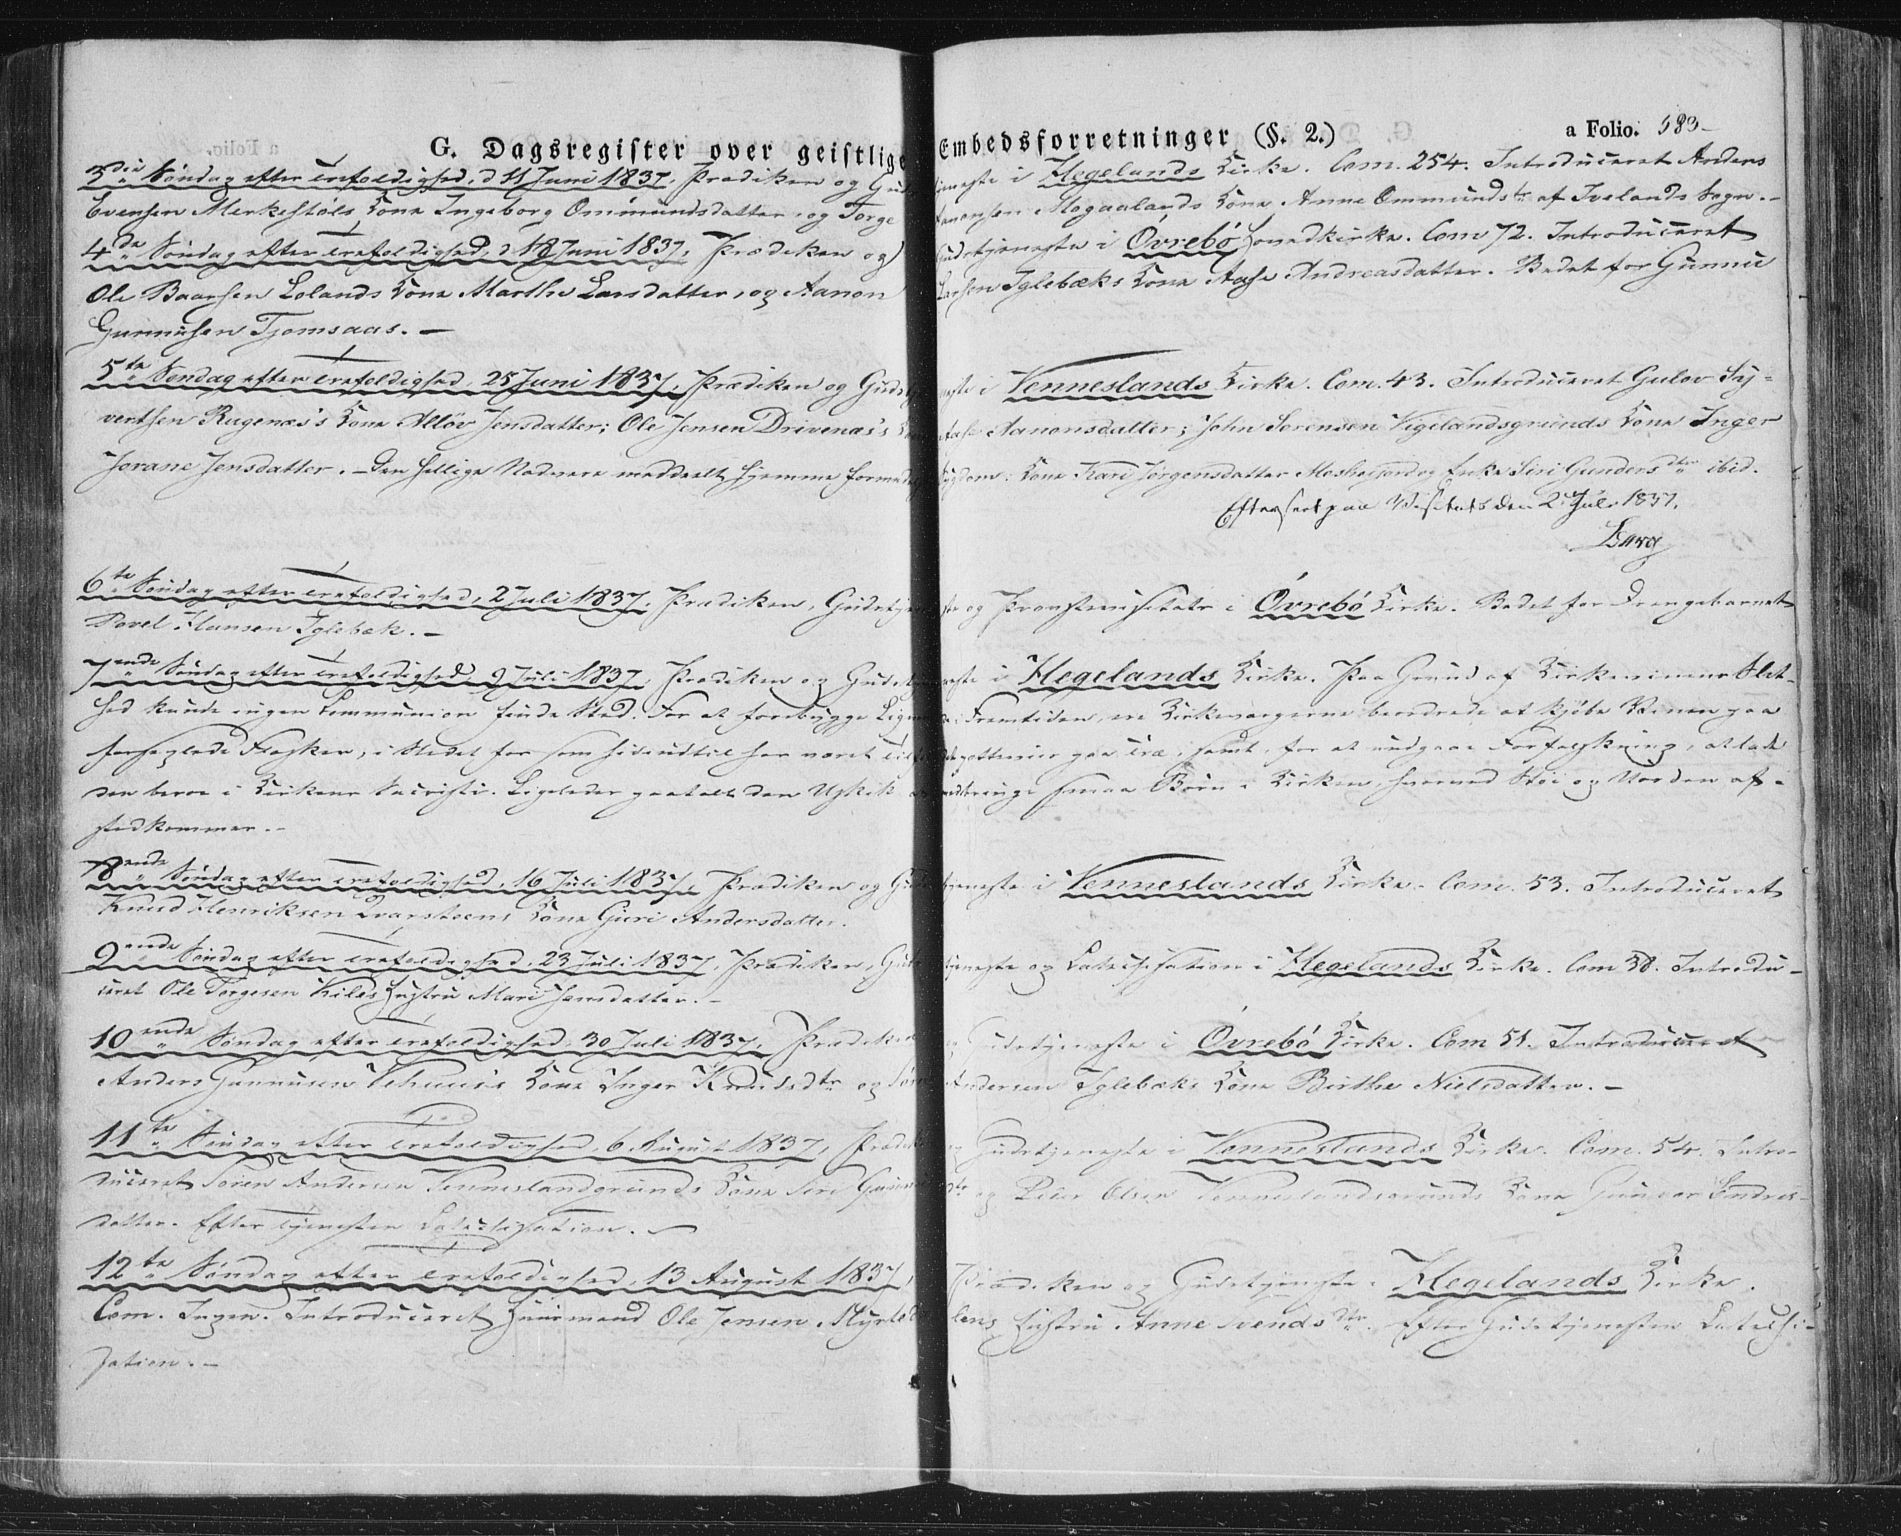 G. Dagsregister over geistlige Embedsforretninger (§. 2.) a Folio. 383
3die Søndag efter Trefoldighed, d 11 Juni 1837, Prædiken og Gudstjeneste i Hegelands Kirke. Com. 254. Introduceret Anders
Evensen Merkestøls Kone Ingeborg Ommundsdatter og Torge Aanonsen Mogaalands Kone Anne Ommundsdtr af Ivelands Sogn.-
4de Søndag efter Trefoldighed, d 18 Juni 1837, Prædiken og Gudstjeneste i Övrebö Hovedkirke. Com 72. Introduceret
Ole Baarsen Lolands Kone Marthe Larsdatter, og Aanon Larsen Iglebæks Kone Aase Andreasdatter. Bedet for Gunnu
Gunnusen Tjomsaas. -
5te Søndag efter Trefoldighed, 25 Juni 1837, Prædiken og Gudstjeneste i Venneslands Kirke. Com. 43. Introduceret Gulov Sy-
vertsen Rugenæs's Kone Alløv Jensdatter; Ole Jensen Drivenæs's Kone Aase Aanonsdatter; John Sørensen Vigelandsgrunds Kone Inger
Jorane Jensdatter. - Den hellige Nadvere meddeelt hjemme formedelst Sygdom: Kone Kari Jørgensdatter Moseidjord og Enke Siri Gundersdtr ibid.
Efterseet paa Visitats den 2 Juli 1837.
6te Søndag efter Trefoldighed, 2 Juli 1837. Prædiken, Gudstjeneste og Provstevisitats i Övrebö Kirke. Bedet for Drengebarnet
Povel Hansen Iglebæk. -
7ende Søndag efter Trefoldighed, 9 Juli 1837. Prædiken og Gudstjeneste i Hegelands Kirke. Paa Grund af Kirkevinens Slet-
hed kunde ingen Communion finde Sted. For at forebygge Lignende i Fremtiden, ere Kirkeværgerne beordrede at kjøbe Vinen paa
forseglede Flasker, i Stedet for som hidindtil har været Tilfældet potteviis paa Træ, samt, for at undgaae Forfalskning, at lade
den beroe i Kirkens Sacristi. Ligeledes paatalt den Uskik at medbringe smaa Børn i Kirken, hvorved Støi og Uorden af-
stedkommer. -
8ende Søndag efter Trefoldighed, 16 Juli 1837, Prædiken og Gudstjeneste i Venneslands Kirke. Com. 53. Introduceret
Knud Henriksen Qvarsteens Kone Guri Andersdatter.
9ende Søndag efter Trefoldighed, 23 Juli 1837, Prædiken, Gudstjeneste og Catechisation i Hegelands Kirke. Com 38. Introdu-
ceret Ole Torgesen Kiles Hustru Mari Jensdatter. -
10ende Søndag efter Trefoldighed, 30 Juli 1837, Prædiken og Gudstjeneste i Övrebö Kirke. Com 51. Introduceret
Anders Gunnusen Kone Inger Knudsdtr og Andersen Iglebæks Kone Birthe Nielsdatter. -
11te Søndag efter Trefoldighed, 6 August 1837, Prædiken og Gudstjeneste i Venneslands Kirke. Com. 54. Intro-
duceret Søren Andersen Venneslandgrunds Kone Siri og Peter Olsen Venneslandsgrunds Kone Gunvor Endres-
datter. Efter Tjenesten Catechisation. -
12te Søndag efter Trefoldighed, 13 August 1837, Prædiken og Gudstjeneste i Hegelands Kirke.
Com. Ingen. Introduceret Huusmand Ole Jensen Hustru Anne Svendsdtr. Efter Gudstjenesten Catechi-
sation. -